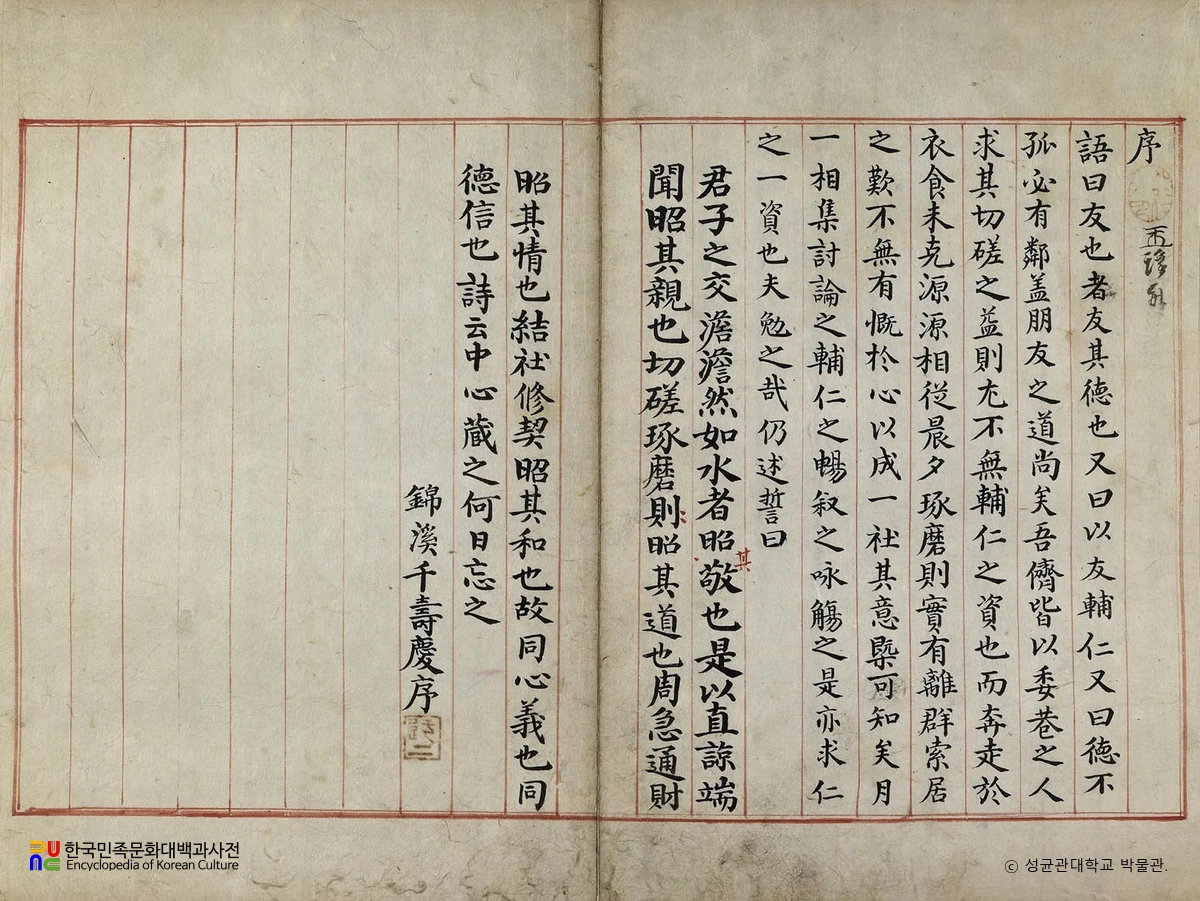 序
語曰友也者友其德也又曰以友輔仁又曰德不
孤必有鄰盖朋友之道尚矣吾儕皆以委巷之人
求其切磋之益則尤不無輔仁之資也而奔走於
衣食未克源源相從晨夕琢磨則實有離群索居
之歎不無有慨於心以成一社其意槩可知矣月
一相集討論之輔仁之暢叙之咏觴之是亦求仁
之一資也夫勉之哉仍述誓曰
君子之交澹澹然如水者昭其敬也是以直諒端
聞昭其親也切磋琢磨則昭其道也周急通財
昭其情也結社修契昭其和也故同心義也同
德信也詩云中心蔵之何日忘之
錦溪千壽慶序
한국민족문화대백과사전
Encyclopedia of Korean Culture
ⓒ 성균관대학교 박물관.